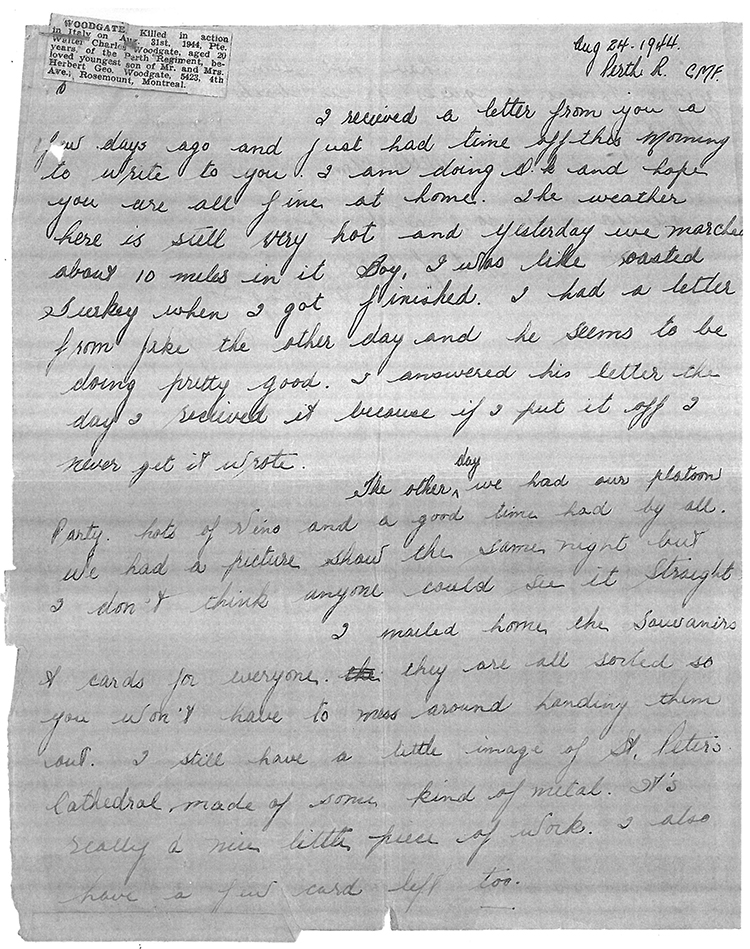 WOODGATE Killed in action
in Italy on Aug. 31st, 1944, Pte.
Walter Charles Woodgate, aged 20
years, of the Perth Regiment, be-
loved youngest son of Mr. and Mrs.
Herbert Geo. Woodgate, 5423, 4th
Ave., Rosemount, Montreal.
Aug 24-1944.
Perth R. CMF.
I recieved a letter from you a
few days ago and just had time off this morning
to write to you. I am doing O.k and hope
you are all fine at home. The weather
here is still very hot and yesterday we marched
about 10 miles in it Boy, I was like roasted
Turkey when I got finished. I had a letter
from Jake the other day and he seems to be
doing pretty good. I answered his letter the
day I recived it because if I put it off I
never get it wrote.
The other day we had our platoon
Party. Lots of Vino and a good time had by all.
we had a picture show the same night but
I don't think anyone could see it straight
I mailed home the Souvanirs
& cards for everyone. the they are all sorted so
you won't have to mess around handing them
out. I still have a little image of St. Peter's
Cathedral made of some kind of metal. It's
really a nice little piece of work. I also
have a few card left too.